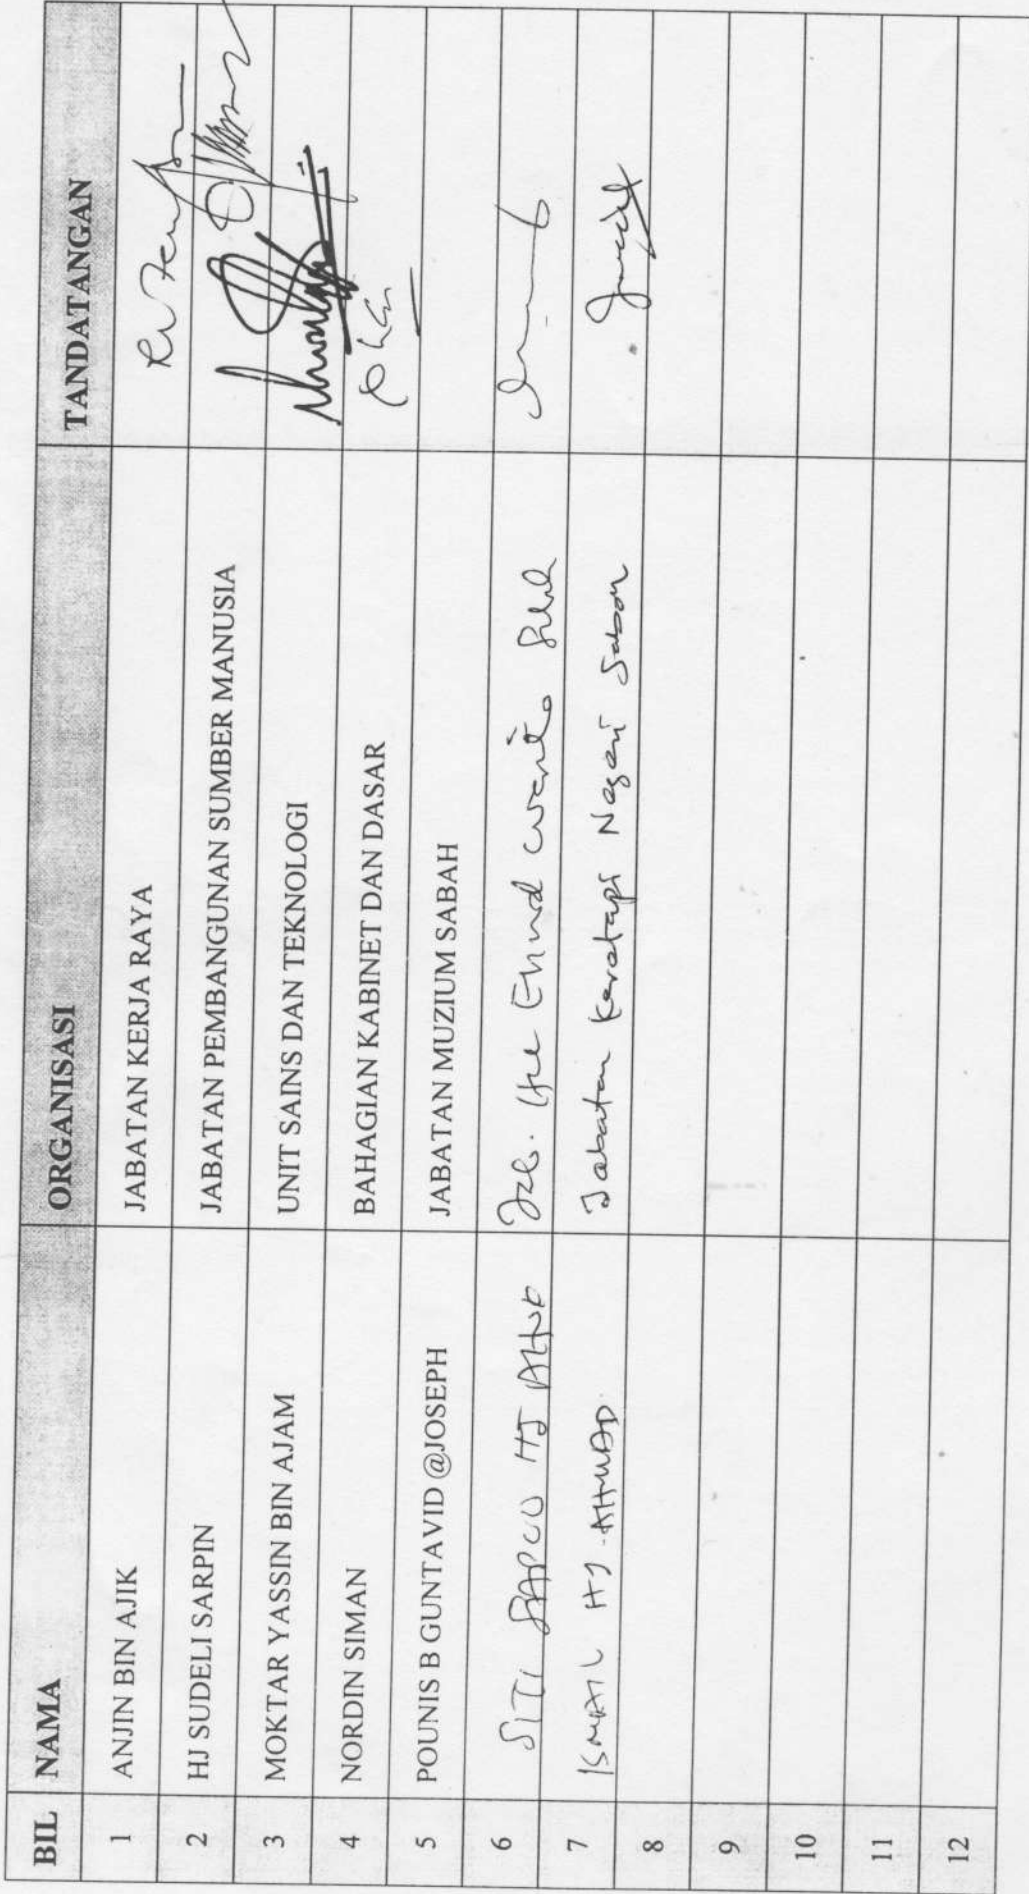 BIL NAMA ORGANISASI TANDATANGAN
1 ANJIN BIN AJIK JABATAN KERJA RAYA
2 HJ SUDELI SARPIN JABATAN PEMBANGUNAN SUMBER MANUSIA
3 MOKTAR YASSIN BIN AJAM UNIT SAINS DAN TEKNOLOGI
4 NORDIN SIMAN BAHAGIAN KABINET DAN DASAR
5 POUNIS B GUNTAVID @JOSEPH JABATAN MUZIUM SABAH
6 SITI HJ
7 ISMAIL HJ. AHMAD. Jabatan Keretapi Negeri
8
9
10
11
12